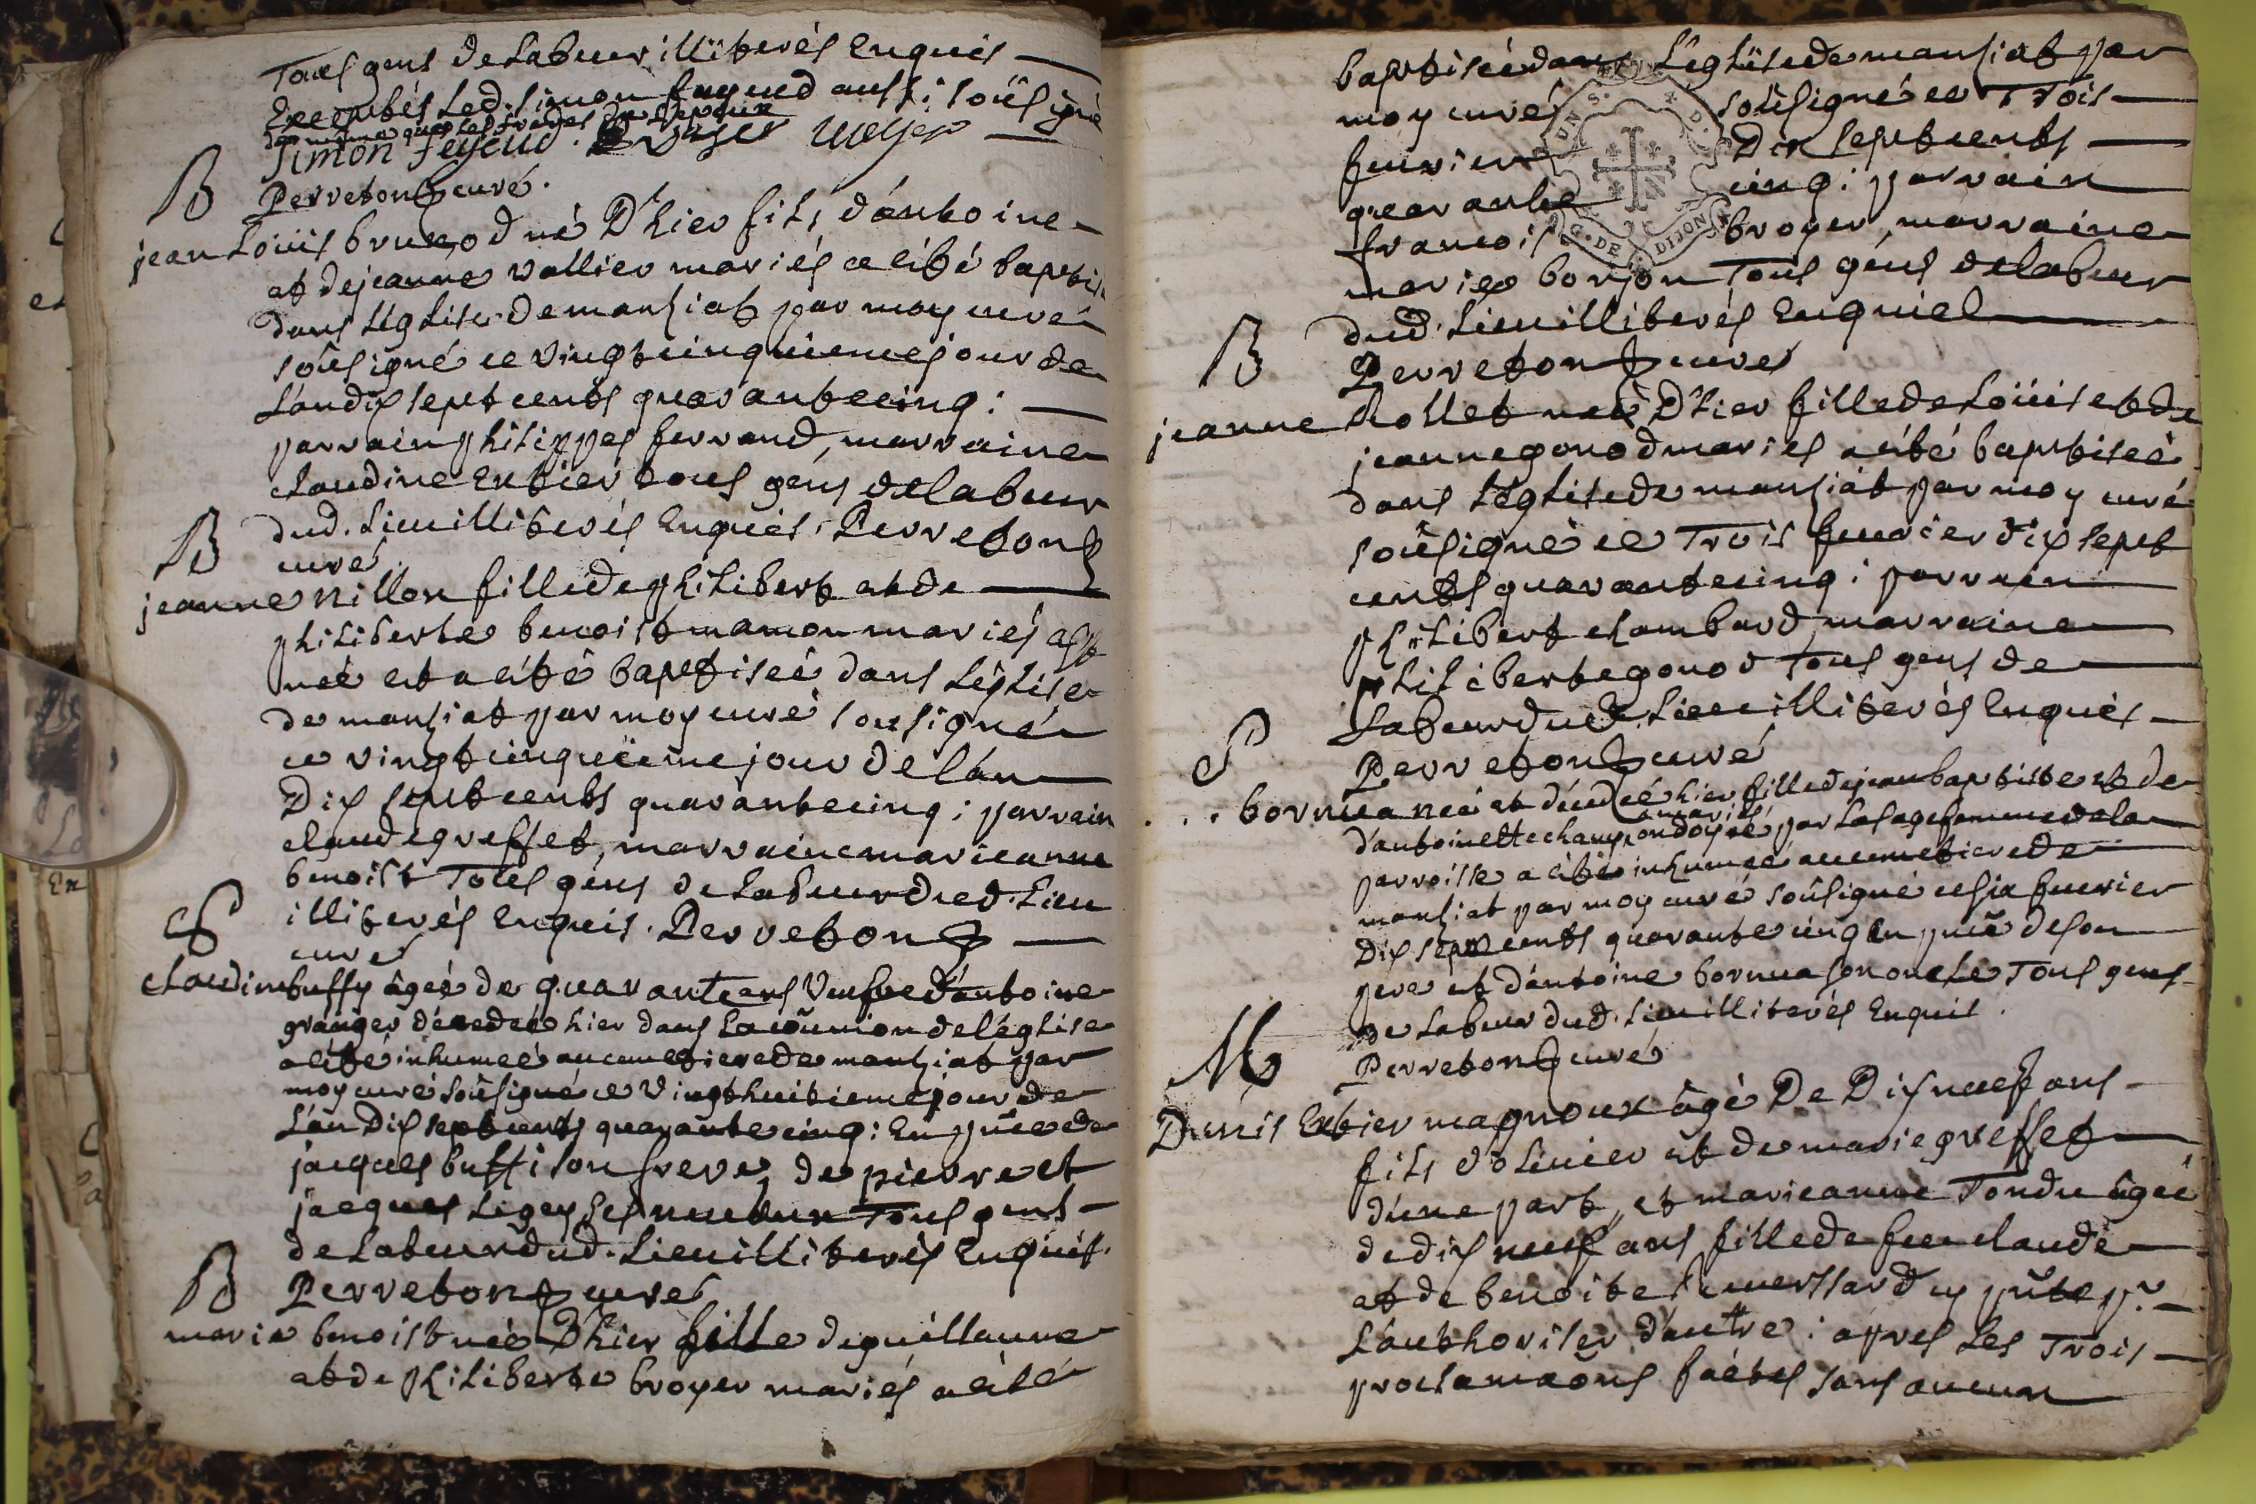 Tous gens de Labeur illiterés Enquis
Exceptés Led. Simon feyeud aussi soûsigné
Simon feyeud
Perreton curé.
B
jean Loüis brunod né D'hier fils d'antoine
et de jeanne vallier mariés a êté baptisé
dans L'églize de manziat par moy curé
soûsigné ce vingtcinquiemejour de
L'andix sept cents quarantecinq :
parrain philippes ferrand, marraine
claudine Exbier tous gens de labeur
dud. Lieu illiterés Enquis. Perreton
curé.
B
jeanne nillon fille de philibert et de
philiberte benoist mamon mariés est
née et a été baptiseé dans L'églize
de manziat par moy curé sousigné
ce vingtcinquieme jour de l'an
Dix sept cents quarantecinq : parrain
claude greffet, marraine marieanne
benoist Tous gens de Labeur dud. Lieu
illiterés Enquis. Perreton
curé
S
claudine buffy âgeé de quaranteans veufve d'antoine
granger décedeé hier dans La coûnion de l'églize
a êté inhumeé au cemetiere de manziat par
moy curé soûsigné ce vingthuitieme jour de
L'an Dix sept cents quarante cinq : En pñce de
jacques buffi son frere, de pierre et
jacques Ligey ses neveux Tous gens
de Labeur dud. Lieu illiterés Enquis.
Perreton curé
B
marie benoist neé D'hier fille de guillaume
et de philiberte broyer mariés a êté
baptiseé dans L'églize de manziat par
moy curé soûsigné ce Trois
fevrier Dix sept cents
quarante cinq : parrain
francois broyer, marraine
marie borjon Tous gens de labeur
dud. Lieu illiterés Enquis
Perreton curé
B
jeanne Rollet neé D'hier fille de Loüis et de
jeanne gonod mariés a été baptiseé
dans L'églize de manziat par moy curé
soûsigné ce Trois fevrier dix sept
cents quarante cinq : parrain
philibert chambard, marraine
philiberte gonod Tous gens de
Labeur dud. Lieu illiterés Enquis
Perreton curé
S
... bornua neé et décedeé hier fille de jean baptiste et de
mariés
d'antoinette champion doyeé par La sagefemme de la
parroisse a êté inhumeé au cemetiere de
manziat par moy curé soûsigné ce six fevrier
Dix sept cents quarante cinq En pñce de son
pere et d'antoine bornua son oncle Tous gens
de Labeur dud. Lieu illiterés Enquis.
Perreton curé
M
Denis Exbier magnoux âgé De Dix neuf ans
fils d'olivier et de marie greffet
d'une part, et marieanne Tondu âgeé
de dix neuf ans fille de feu claude
et de benoite pñte pr.
L'authoriser d'autre : apres Les Trois
proclamaõns faites sans aucun
UNS. X. D.
G. DE DIJON